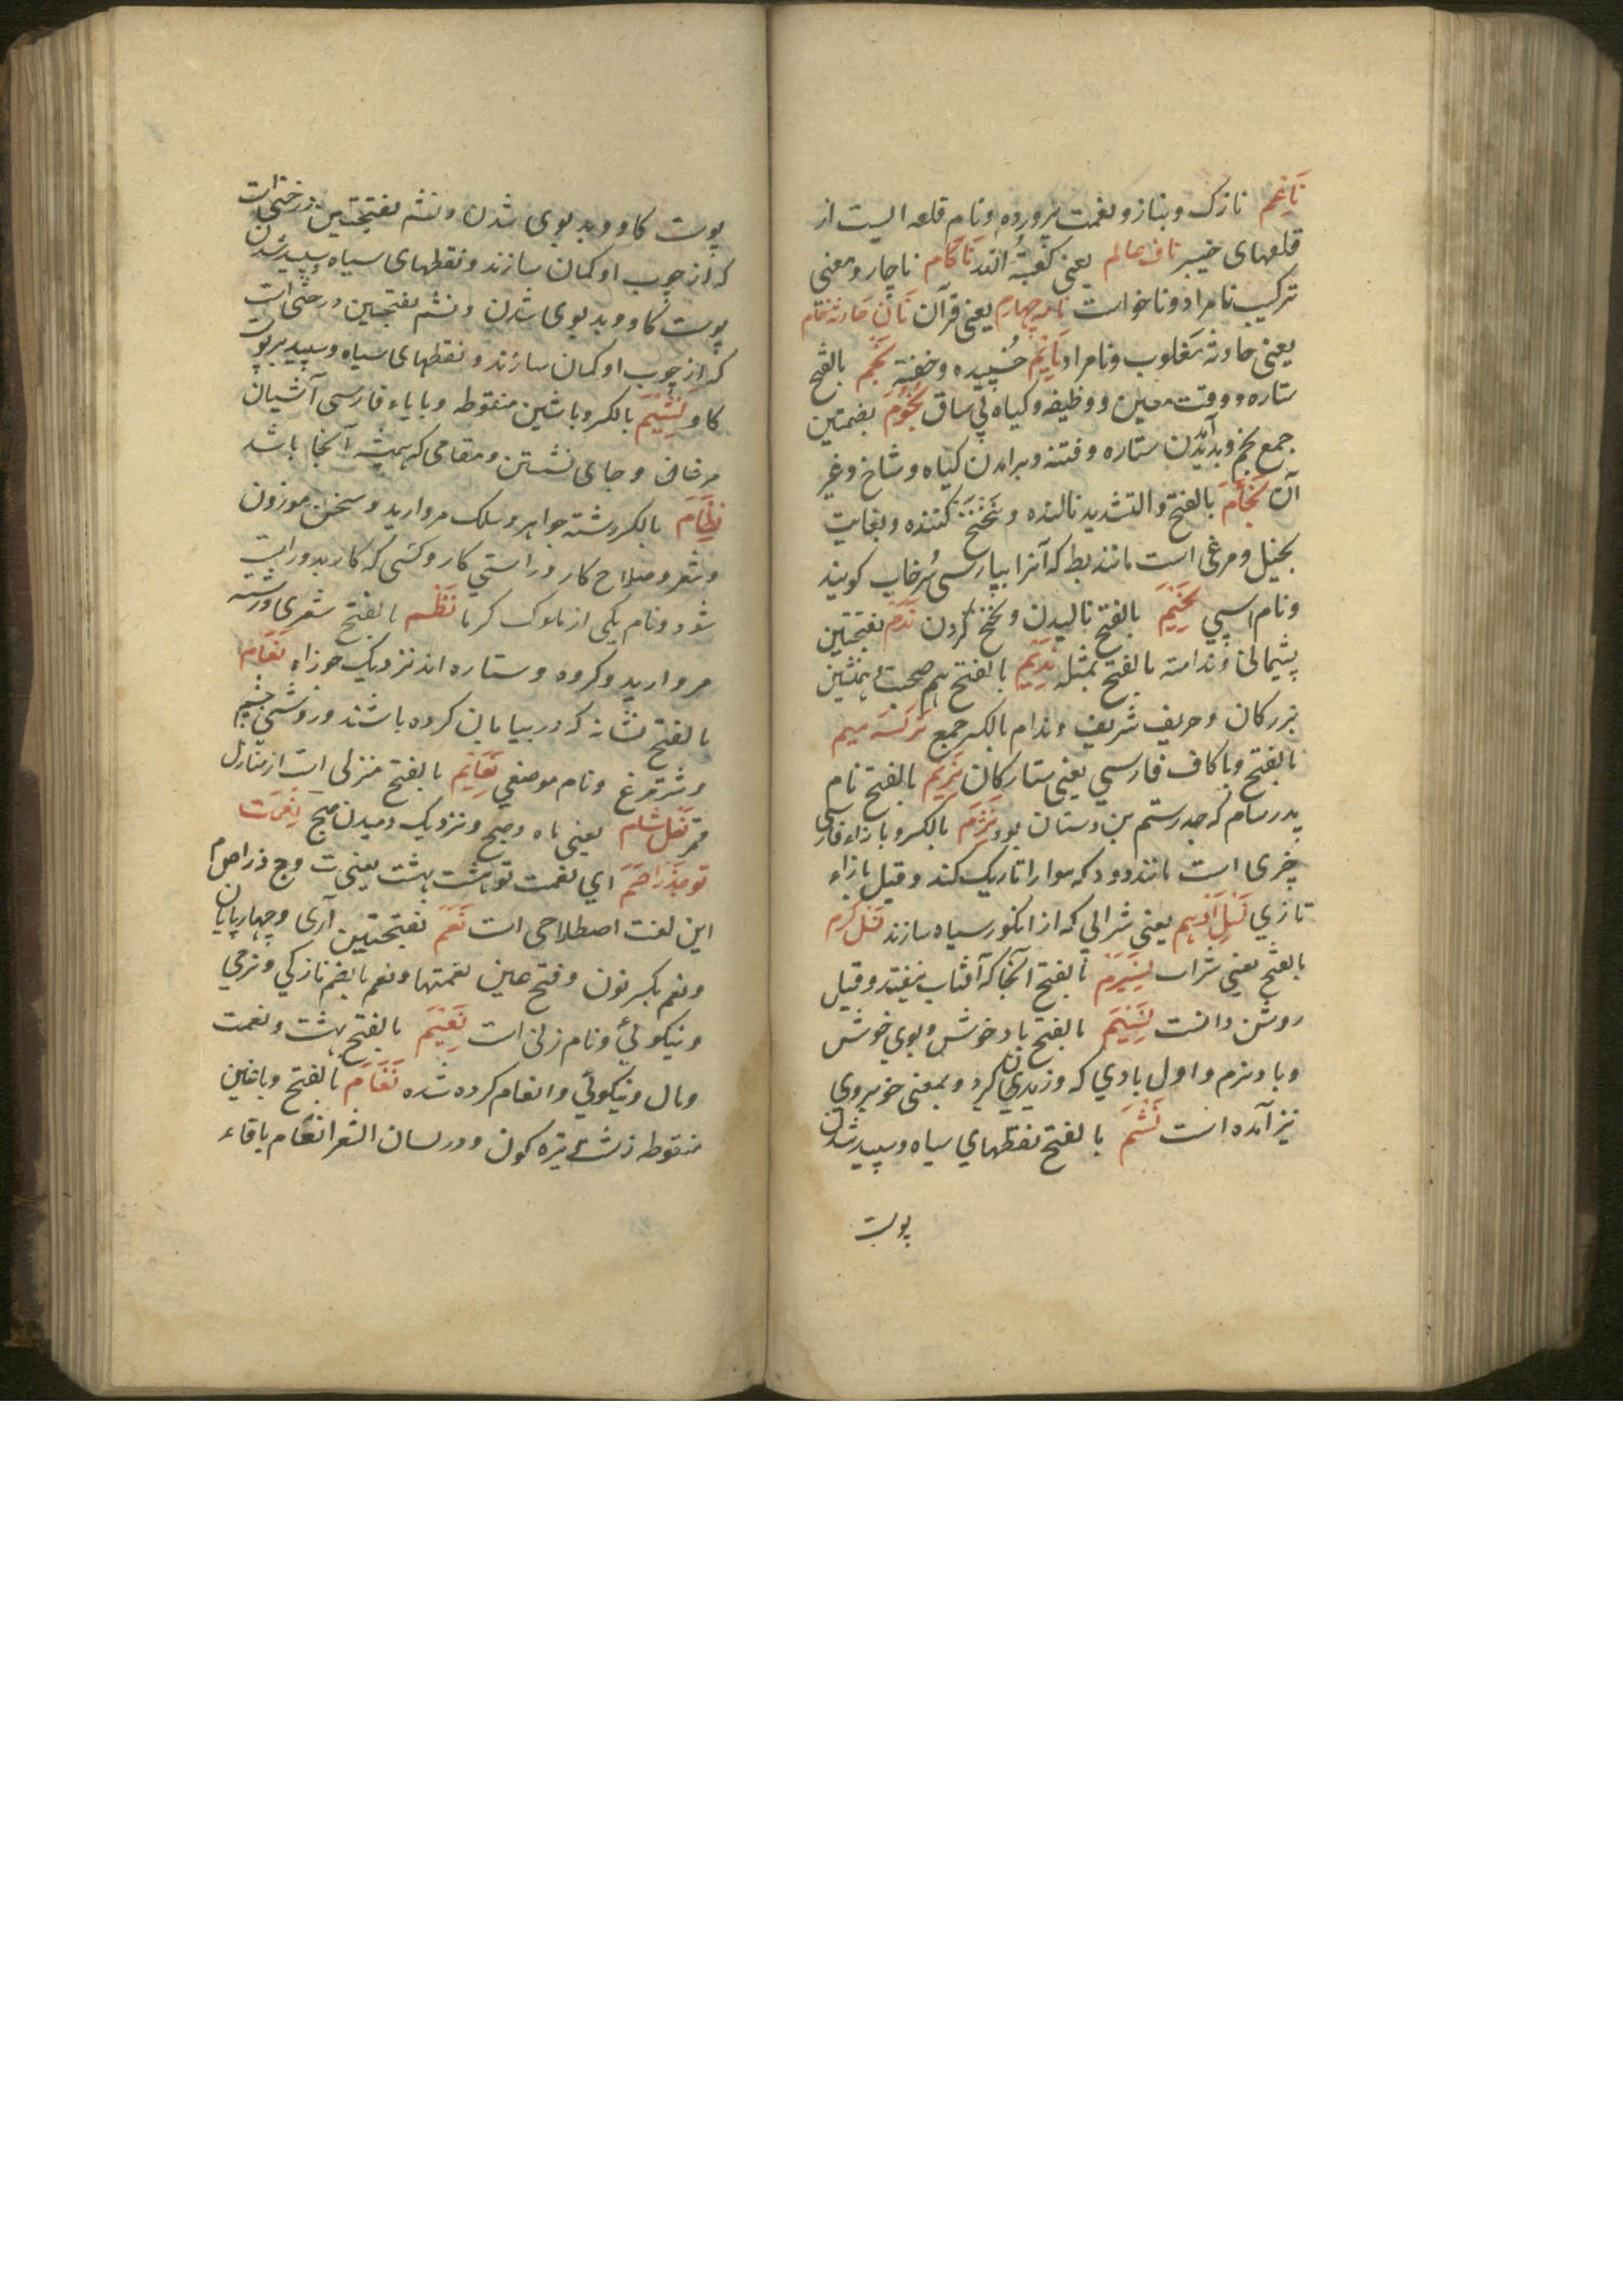 نَاعِم نازک و بناز و نعمت پرورده و نام قلعه ایست از
قلعهای خیبر ناف عالم یعنی کعبة الله نَاکَام ناچار و معنی
ترکیب نامراد و ناخواست نامه چهارم یعنی قرآن نَان
یعنی حادثه مغلوب و نامراد نَایِم خُسپیده و خفته نَجم بالفتح
ستاره و وقت معین و وظیفه و کیاه بی ساق نُجُوم بضمتین
جمع نجم و بدید آمدن ستاره و فتنه و برامدن کیاه و شاخ و غیر
آن نَحَّام بالفتح و التشدید نالنده و تنحنح کننده و بغایت
بخیل و مرغی است مانند بط که آنرا بپارسی سُرخاب کویند
و نام اسپی نَحِیم بالفتح نالیدن و تنحنح کردن نَدَم بفتحتین
پشیمانی و ندامة بالفتح بمثله نَدِیم بالفتح هم صحبت و همنشین
بزرکان و حریف شریف و ندام بالکسر جمع نرکسه سیم
بالفتح و با کاف فارسی یعنی ستارکان نَرِیم بالفتح نام
پدر سام که جد رستم بن دستان بود نِزم بالکسر و با زاء فارسی
چیزی است مانند دود که هوا را تاریک کند و قیل بازاء
تازی نَسل ادهم یعنی شرابی که از انکور سیاه سازند نسل کرم
بالفتح یعنی شراب نَسِیرَم بالفتح آنجا که آفتاب نیفتد و قیل
روشن دانست نَسِیم بالفتح باد خوش و بوی خوش
و باد نرم و اول بادی که وزیدن کیرد و بمعنی خوبروی
نیز آمده است نَشم بالفتح نقطهای سیاه و سپید شدن
پوست
پوست کاو و بدبوی شدن و نشم بفتحتین درختی است
که از چوب او کمان سازند و نقطهای سیاه و سپید شدن
پوست کاو و بدبوی شدن و نشم بفتحتین درختی است
که از چوب او کمان سازند و نقطهای سیاه و سپید بر پوست
کاو نِشِیم بالکسر و با شین منقوطه و با یاء فارسی آشیان
مرغان و جای نشستن و مقامی که همیشه آنجا باشد
نِظَام بالکسر رشته جواهر و سلک مروارید و سخن موزون
و شعر و صلاح کار و راستی کار و کسی که کار بدو راست
شود و نام یکی از ملوک کرما نَظم بالفتح شعری و رشته
مروارید و کروه و ستاره اند نزدیک جوزاء نَعَام
بالفتح نشانه که در بیابان کرده باشند و روشنی
و شترمرغ و نام موضعی نَعَایِم بالفتح منزلی است از منازل
قمر نَعل شام یعنی ماه و صبح و نزدیک دمیدن صبح نعمت
تو مذراصم ای نعمت تو هشت بهشت یعنی
این لغت اصطلاحی است نَعَم بفتحتین آری و چهارپایان
و نعم بکسر نون و فتح عین نعمتها و نعم بالضم نازکی و نرمی
و نیکوئی و نام زنی است نَعِیم بالفتح بهشت و نعمت
و مال و نیکوئی و انعام کرده شده نَغَام بالفتح و باغین
منقوطه زشت تیره کون و در لسان الشعرا نغام با فاء